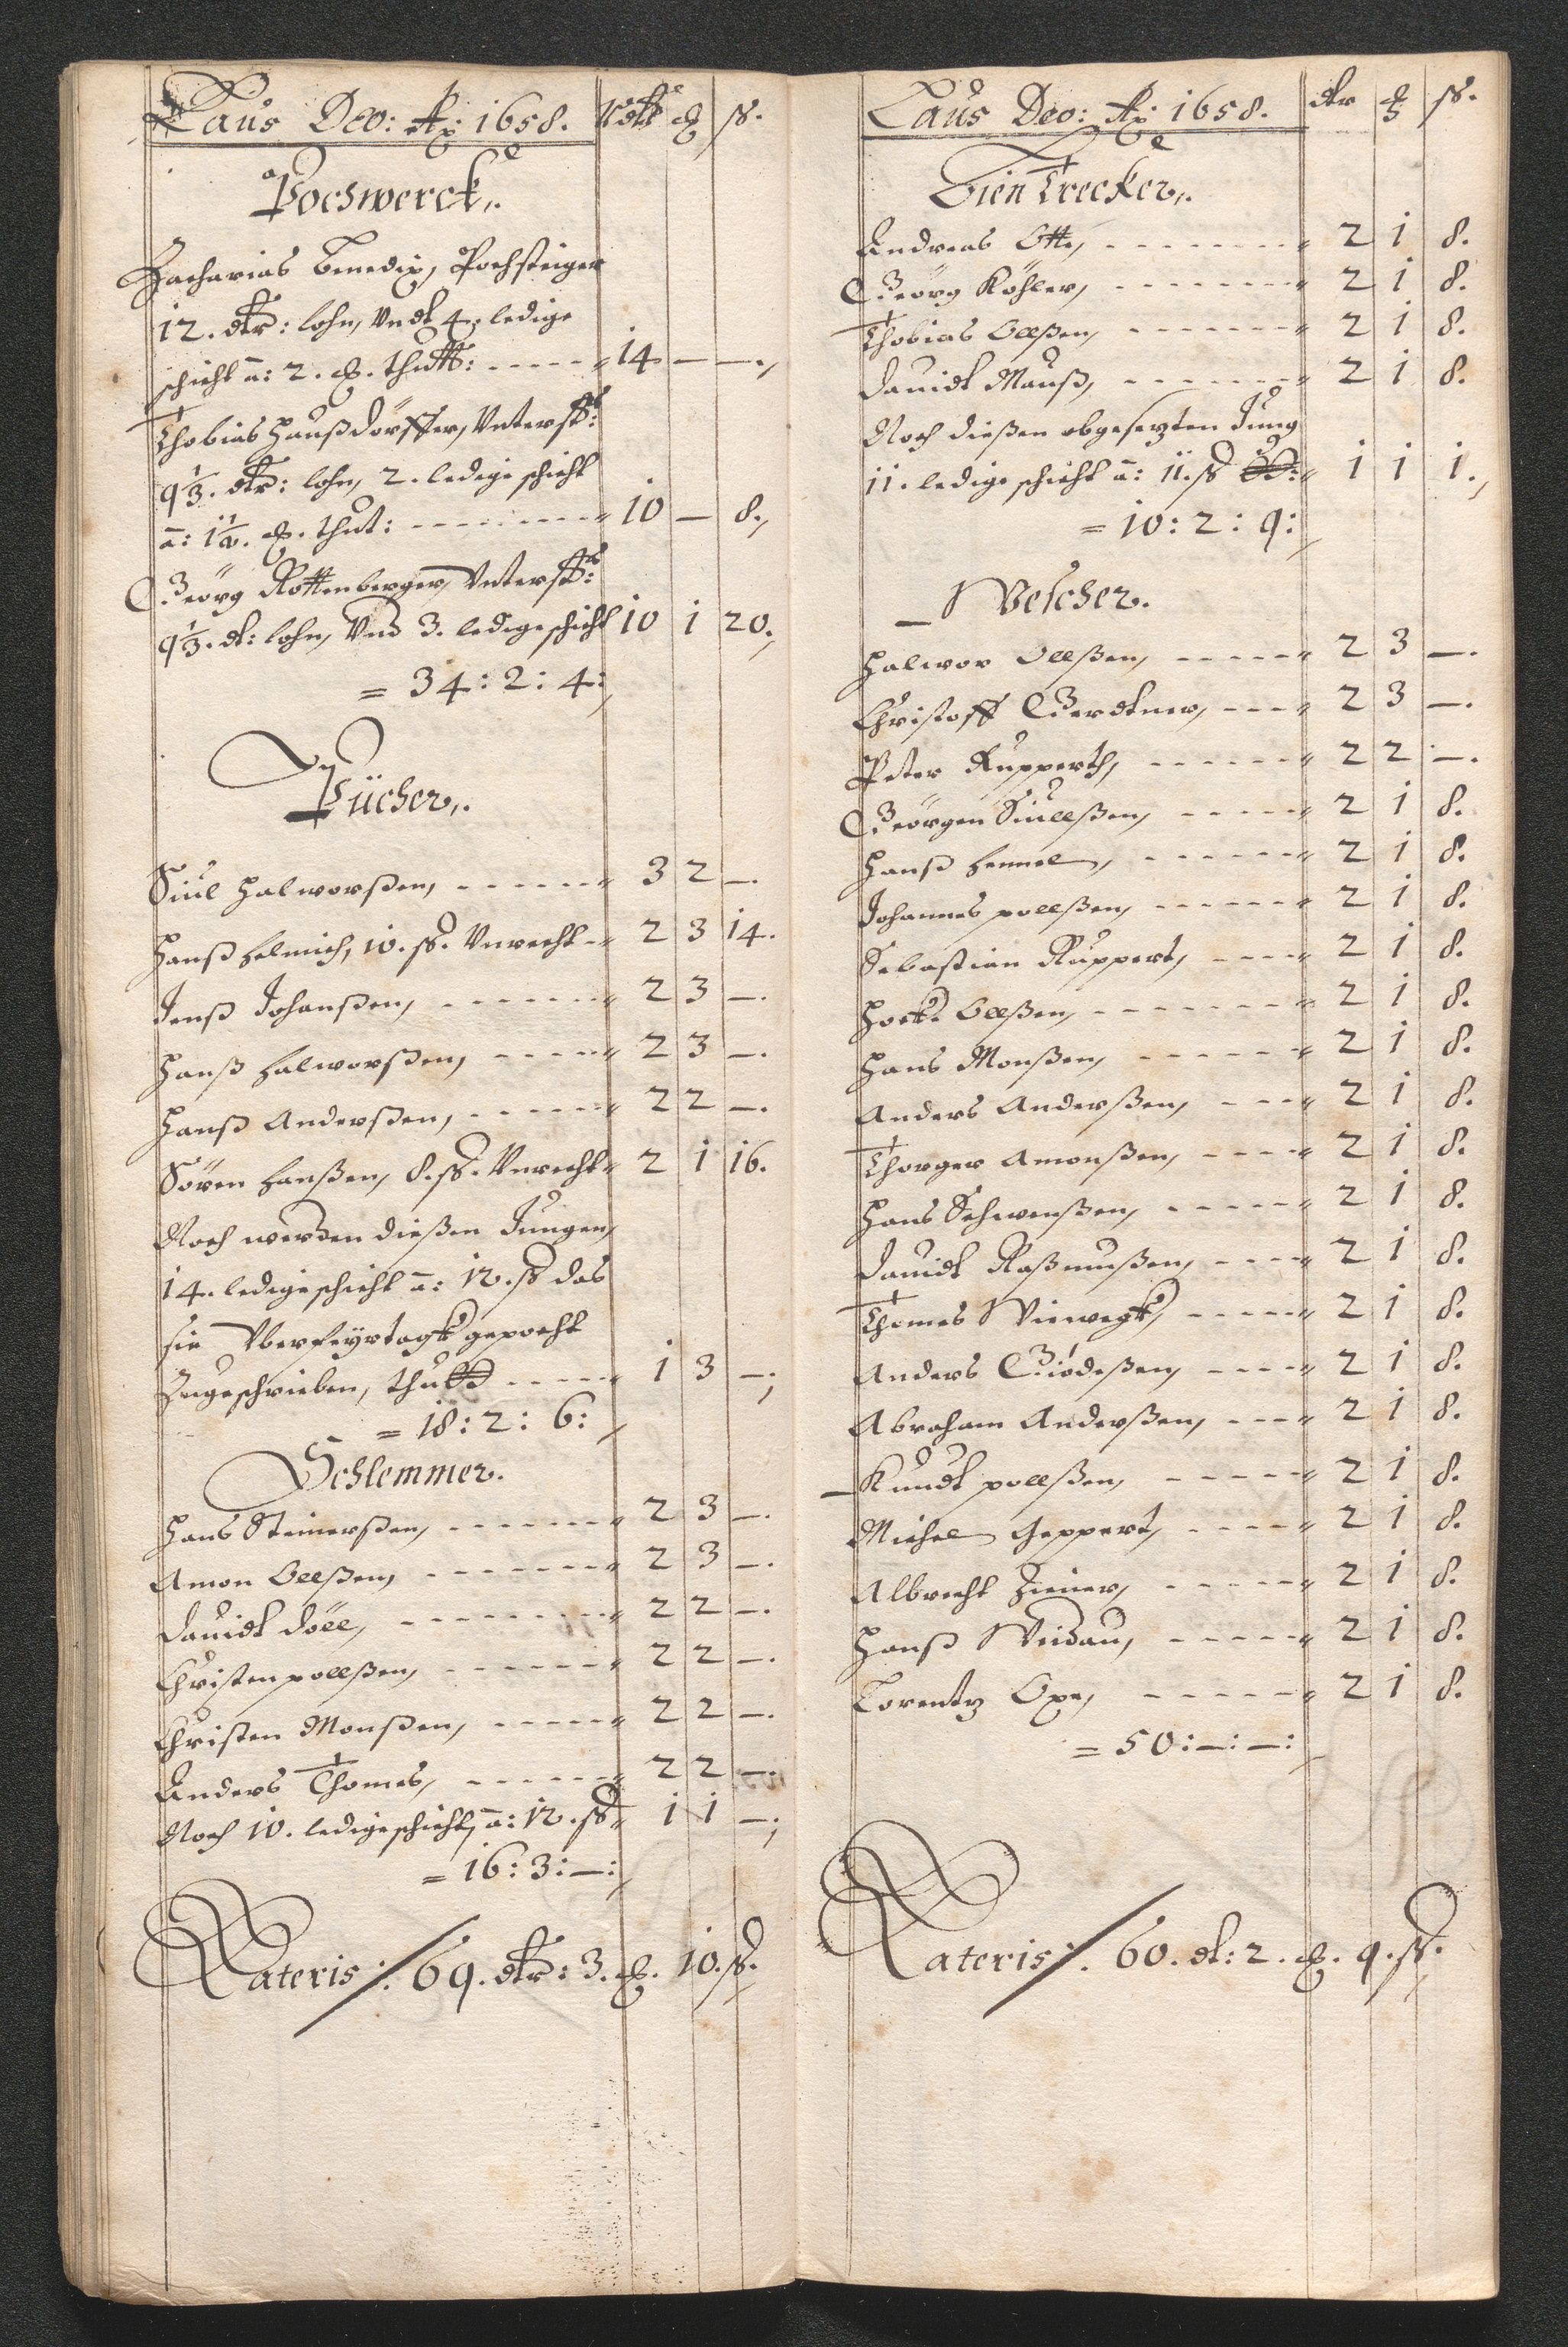 Laus Deo: Ao: 1658. Rdlr ꝗ ß.
Pochwerck,.
Zacharias Benedix, Pochsteiger
12. dlr: lohn, Undt 4. ledige
schicht a: 2. ꝗ. thutt: 14 — —.,
Thobias Haußdörffer, Unterst:
9 1/3. dlr: lohn, 2. ledige schicht
a: 1 1/2. ꝗ. thut: 10 — 8.,
Geörg Rottenberger, Unterst:
9 1/3. dl: lohn, Und 3. ledige schicht 10 1 20.,
= 34: 2: 4:,
Pücher,.
Siul Halworßen, 3 2 —.
Hanß Helmich, 10. ß. Unrecht 2 3 14.
Jenß Johanßen, 2 3 —.
Hanß Halworßen, 2 3 —.
Hanß Anderßen, 2 2 —.
Sören Hanßen, 8. ß. Unrecht 2 1 16.
Noch werden dießen Jungen,
14. ledige schicht a: 12. ß das
sie Uber feyrtagk gepocht
Zugeschrieben, thutt 1 3 —;
= 18: 2: 6:,
Schlemmer.
Hans Steinerßen, 2 3 —.
Amon Ollßen, 2 3 —.
Dauidt Döll, 2 2 —.
Christen pollßen, 2 2 —.
Christen Monßen, 2 2 —.
Anders Thomes, 2 2 —.
Noch 10. ledige schicht, a: 12. ß 1 1 —;
= 16: 3: —:,
Lateris:/. 69. dlr: 3. ꝗ. 10. ß.
Laus Deo: Ao: 1658. dlr ꝗ ß.
Hien Trecker,.
Andreas Otte, 2 1 8.
Geörg Köhler, 2 1 8.
Thobias Ollßen, 2 1 8.
Dauidt Mauß, 2 1 8.
Noch dießen obgesezten Jung
11. ledige schicht a: 11. ß 1 1 1.,
= 10: 2: 9:,
Wescher.
Halwor Ollßen, 2 3 —.
Christoff Gerdtner, 2 3 —.
Peter Rupperth, 2 2 —.
Geörgen Siullßen, 2 1 8.
Hanß Hemmel, 2 1 8.
Johannes pollßen, 2 1 8.
Sebastian Ruppert, 2 1 8.
Ollßen, 2 1 8.
Hans Monßen, 2 1 8.
Anders Anderßen, 2 1 8.
Thorger Amonßen, 2 1 8.
Hans Schwenßen, 2 1 8.
Dauidt Raßmußen, 2 1 8.
Thomes Viewegk, 2 1 8.
Anders Giödeßen, 2 1 8.
Abraham Anderßen, 2 1 8.
Knudt pollßen, 2 1 8.
Michel Geppert, 2 1 8.
Albrecht Ziener, 2 1 8.
Hanß Weidau, 2 1 8.
Lorentz Oxe, 2 1 8.
= 50: —: —:,
Lateris:/. 60. dl: 2. ꝗ. 9. ß.